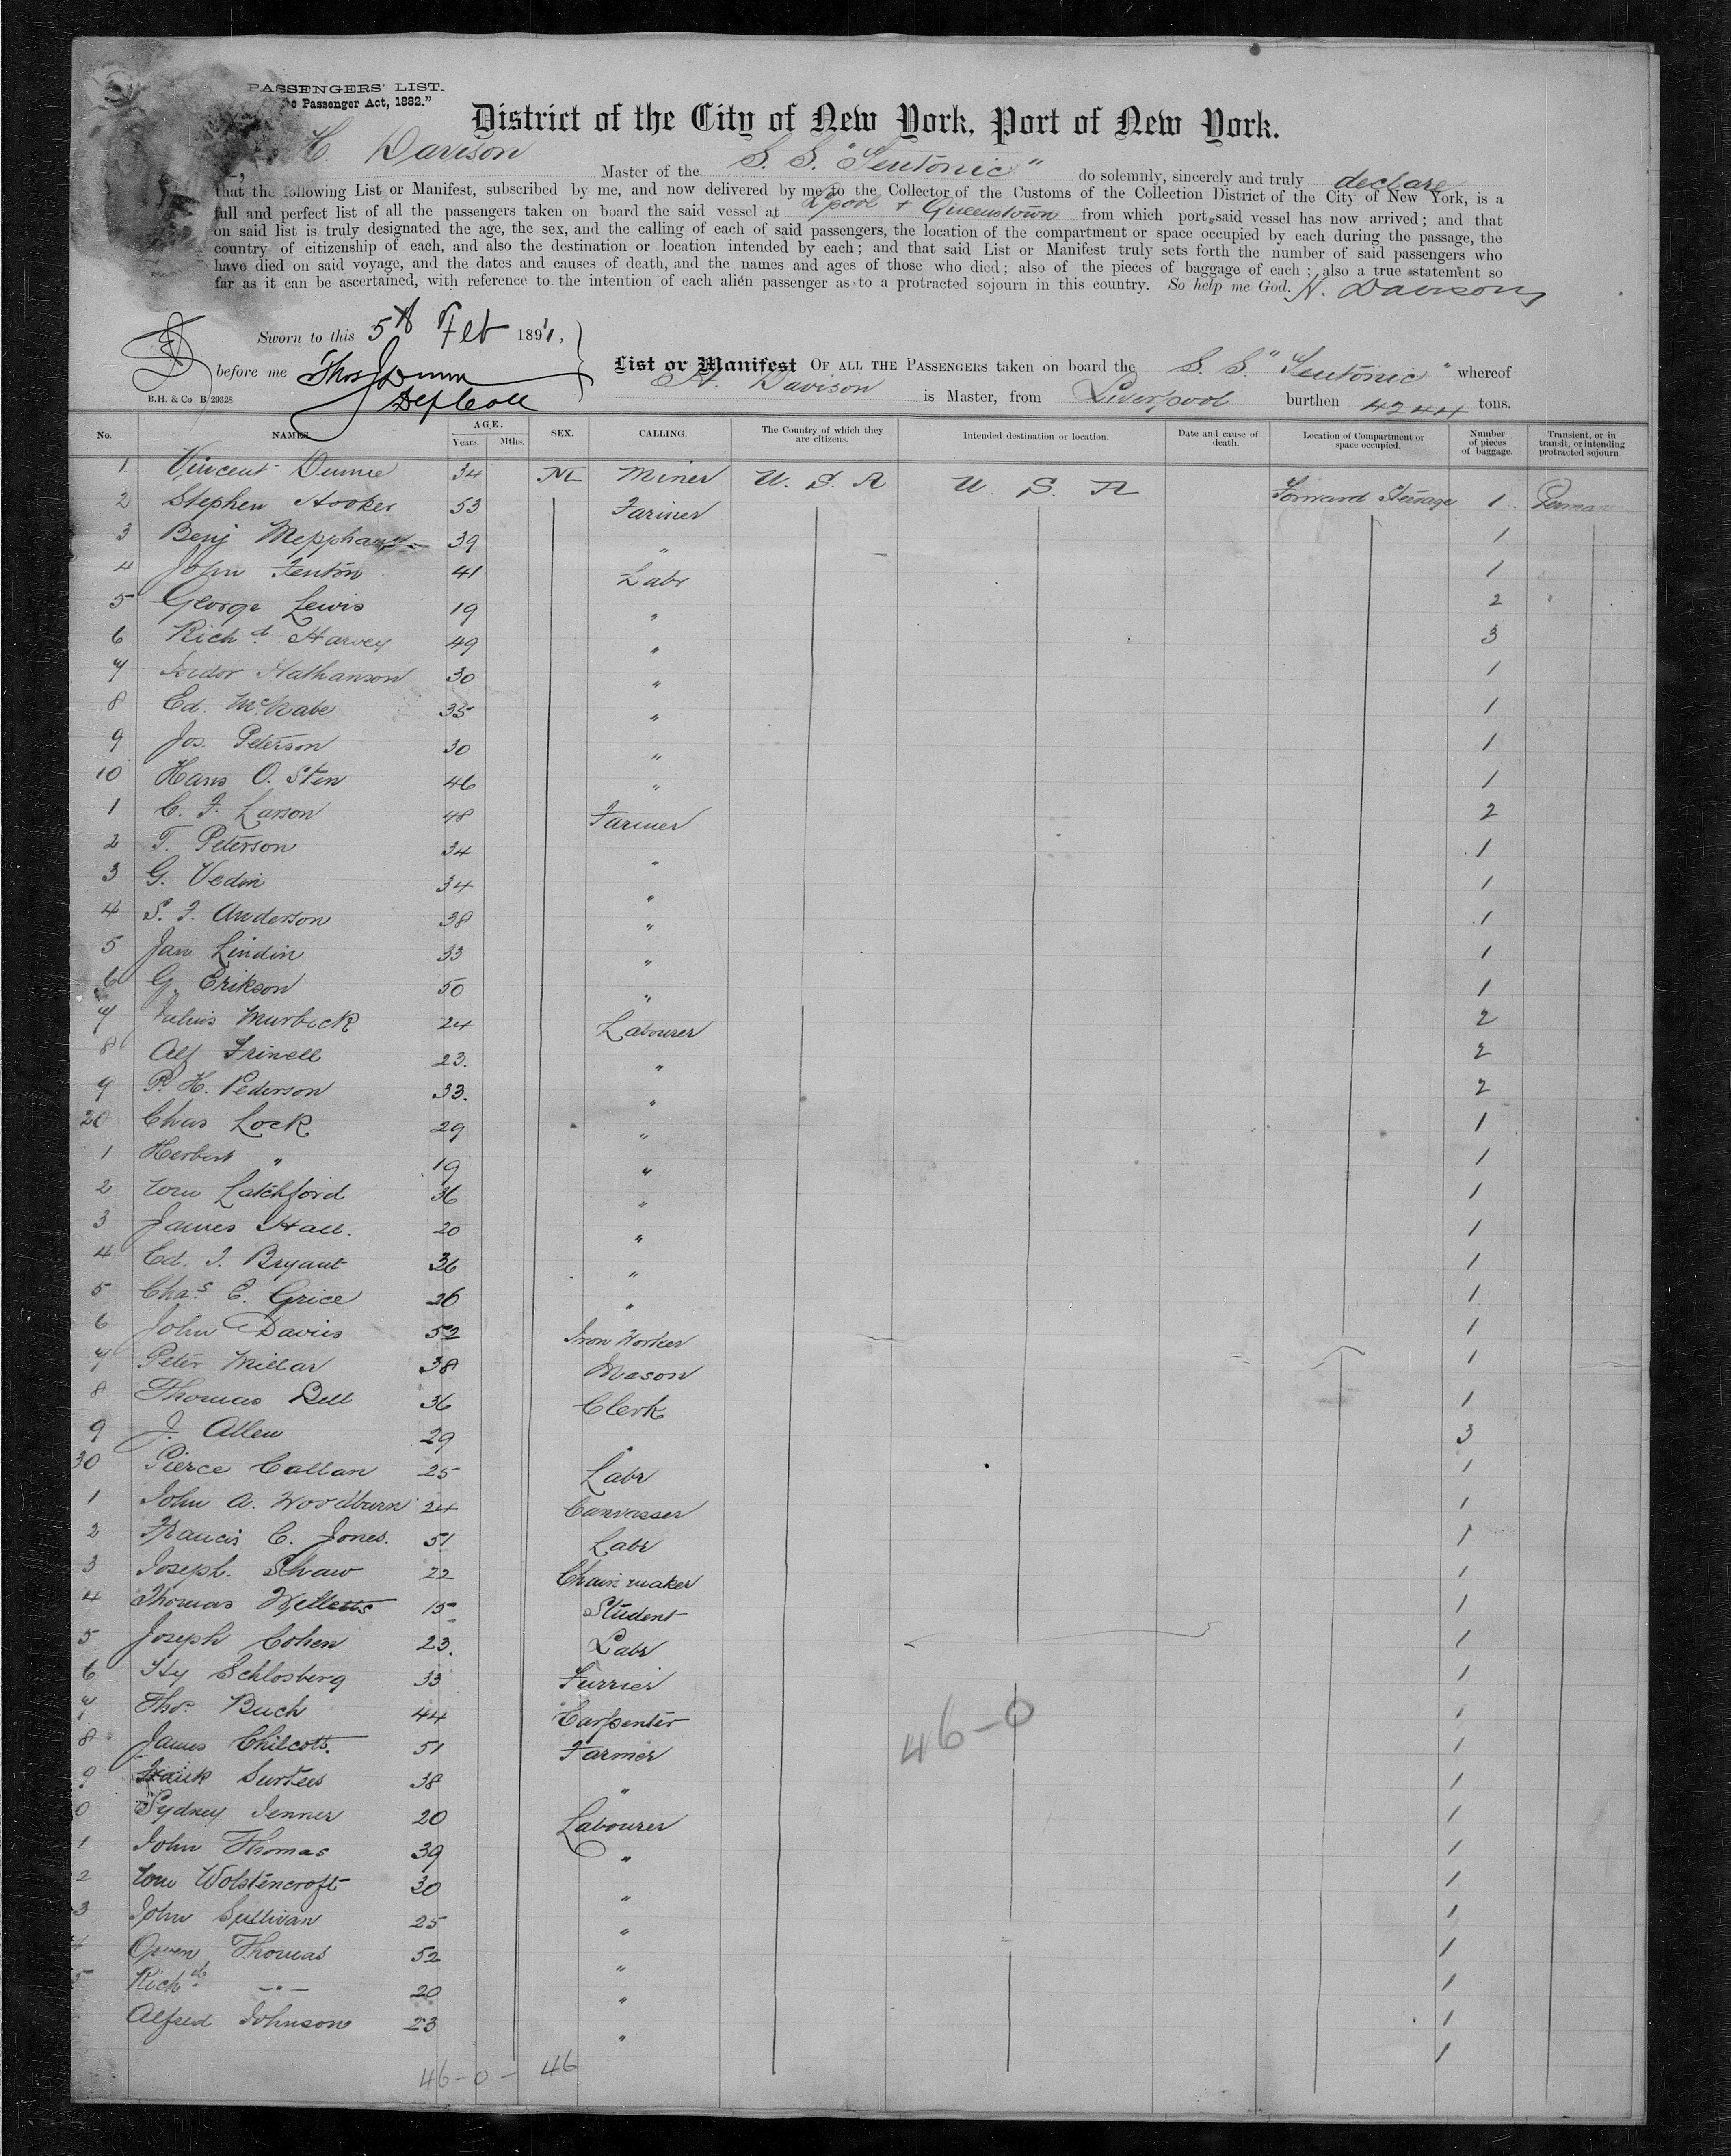 PASSENGERS' LIST.
Passenger Act, 1882."
District of the City of New York, Port of New York.
H. Davison Master of the S. S. "Teutonic" do solemnly, sincerely and truly declare
that the following List or Manifest, subscribed by me, and now delivered by me to the Collector of the Customs of the Collection District of the City of New York, is a
full and perfect list of all the passengers taken on board the said vessel at L'pool + Queenstown from which port, said vessel has now arrived; and that
on said list is truly designated the age, the sex, and the calling of each of said passengers, the location of the compartment or space occupied by each during the passage, the
country of citizenship of each, and also the destination or location intended by each; and that said List or Manifest truly sets forth the number of said passengers who
have died on said voyage, and the dates and causes of death, and the names and ages of those who died; also of the pieces of baggage of each; also a true statement so
far as it can be ascertained, with reference to the intention of each alien passenger as to a protracted sojourn in this country. So help me God. H. Davison
Sworn to this 5th Feb 1891,
before me Thos J Dunn
B.H. & Co B 29328
List or Manifest OF ALL THE PASSENGERS taken on board the S. S. "Teutonic" whereof
H. Davison is Master, from Liverpool burthen 4244 tons.
No. NAMES AGE. Years. Mths. SEX. CALLING. The Country of which they are citizens. Intended destination or location. Date and cause of death. Location of Compartment or space occupied. Number of pieces of baggage. Transient, or in transit, or intending protracted sojourn.
1 Vincent Dunne 34 M Miner U. S. A U. S. A Forward Steerage 1
2 Stephen Hooker 53 Farmer 1
3 Benj 39 " 1
4 John Fenton 41 Labr 2
5 George Lewis 19 " 3
6 Richd Harvey 49 " 1
7 Isidor Nathanson 30 " 1
8 Ed. McNabe 35 " 1
9 Jos. Peterson 30 " 1
10 Hans O. Sten 46 " 2
1 C. F. Larson 48 Farmer 1
2 T. Peterson 34 " 1
3 G. Vedin 34 " 1
4 S. F. Anderson 38 " 1
5 Jan Lindin 33 " 1
6 G. Erikson 50 " 2
7 Julius Murbeck 24 Labourer 2
8 Alf Frinell 23. " 2
9 P. H. Pederson 33. " 1
20 Chas Lock 29 " 1
1 Herbert " 19 " 1
2 Wm Latchford 36 " 1
3 James Hall. 20 " 1
4 Ed. J. Bryant 36 " 1
5 Chas E. Grice 26 " 1
6 John Davies 52 Iron Worker 1
7 Peter Millar 38 Mason 1
8 Thomas Bell 36 Clerk 3
9 J. Allen 29 " 1
30 Pierce Callan 25 Labr 1
1 John A. Woodburn 24 Canvasser 1
2 Francis C. Jones. 51 Labr 1
3 Joseph. Shaw 22 Chain maker 1
4 Thomas Welletts 15 Student 1
5 Joseph Cohen 23. Labr 1
6 Hy Schlosberg 33 Furrier 1
7 Thos. Buch 44 Carpenter 1
8 James Chilcott. 51 Farmer 1
9 Frank Surtees 38 " 1
0 Sydney Jenner 20 Labourer 1
1 John Thomas 39 " 1
2 Wm Wolstencroft 30 " 1
3 John Sullivan 25 " 1
4 Owen Thomas 52 " 1
5 Richd -"- 20 " 1
Alfred Johnson 23 " 1
46-0
46-0- 46